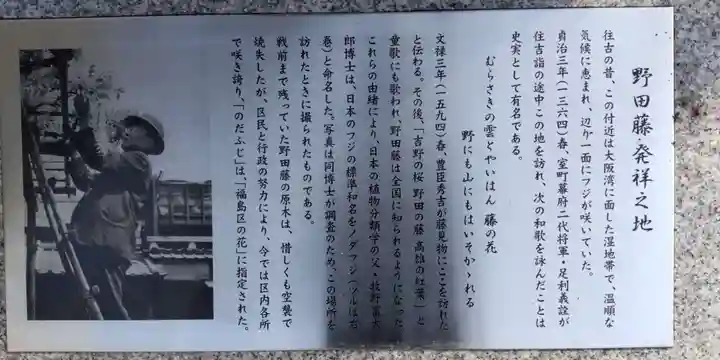 野田藤・発祥之地
往古の昔、この付近は大阪湾に面した湿地帯で、温順な
気候に恵まれ、辺り一面にフジが咲いていた。
貞治三年(一三六四)春、室町幕府二代将軍・足利義詮が
住吉詣の途中この地を訪れ、次の和歌を詠んだことは
史実として有名である。
むらさきの雲とやいはん 藤の花
野にも山にもはいそかゝれる
文禄三年(一五九四)春、豊臣秀吉が藤見物にここを訪れた
と伝わる。その後、「吉野の桜 野田の藤 高雄の紅葉」と
童歌にも歌われ、野田藤は全国に知られるようになった。
これらの由緒により、日本の植物分類学の父・牧野富太
郎博士は、日本のフジの標準和名をノダフジ(ツルは右
巻)と命名した。写真は同博士が調査のため、この場所を
訪れたときに撮られたものである。
戦前まで残っていた野田藤の原木は、惜しくも空襲で
焼失したが、区民と行政の努力により、今では区内各所
で咲き誇り、「のだふじ」は、「福島区の花」に指定された。